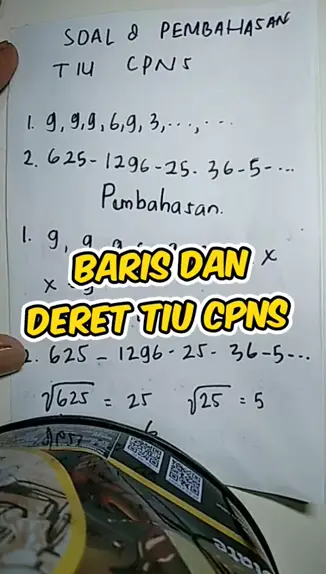 SOAL & PEMBAHASAN
TIU CPNS
1. 9, 9, 9, 6, 9, 3, ..., ...
2. 625 - 1296 - 25 - 36 - 5 - ...
Pembahasan.
1. 9,
x
x
BARIS DAN
DERET TIU CPNS
2. 625 - 1296 - 25 - 36 - 5 ...
√625 = 25 √25 = 5